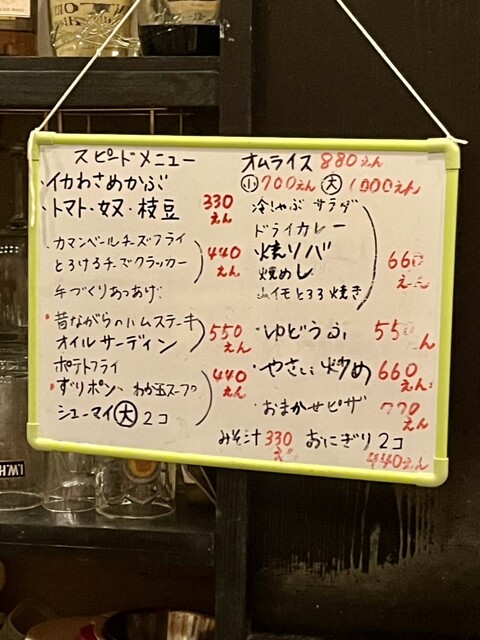 スピードメニュー
・イカわさめかぶ
・トマト・奴・枝豆 330えん
・カマンベールチーズフライ
とろけるチーズクラッカー 440えん
手づくりあつあげ
・昔ながらのハムステーキ
オイルサーディン 550えん
ポテトフライ
・ずりポン、わか玉スープ 440えん
シューマイ大2コ
オムライス 880えん
小700えん 大1000えん
冷しゃぶサラダ
ドライカレー
焼ソバ 660えん
焼めし
山イモとろろ焼き
・ゆどうふ 550えん
・やさい炒め 660えん
・おまかせピザ 770えん
みそ汁 330えん おにぎり2コ
440えん
I.W.H